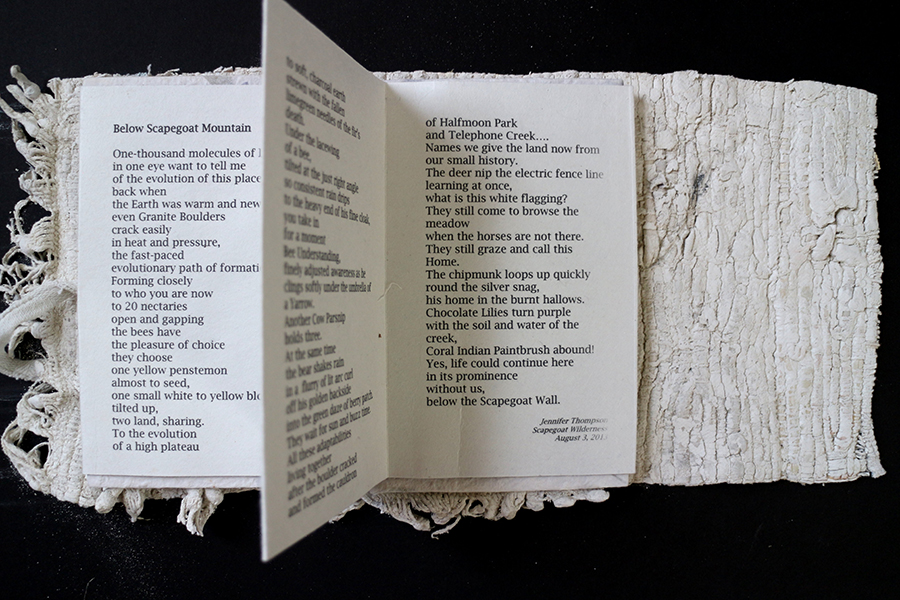 Below Scapegoat Mountain
One-thousand molecules of
in one eye want to tell me
of the evolution of this place
back when
the Earth was warm and new
even Granite Boulders
crack easily
in heat and pressure,
the fast-paced
evolutionary path of formati
Forming closely
to who you are now
to 20 nectaries
open and gapping
the bees have
the pleasure of choice
they choose
one yellow penstemon
almost to seed,
one small white to yellow blo
tilted up,
two land, sharing.
To the evolution
of a high plateau
to soft, charcoal earth
strewn with the fallen
limegreen needles of the fir's
death.
Under the lacewing
of a bee,
tilted at the just right angle
so consistent rain drips
to the heavy end of his fine cloak,
you take in
for a moment
Bee Understanding,
finely adjusted awareness as he
clings softly under the umbrella of
a Yarrow.
Another Cow Parsnip
holds three.
At the same time
the bear shakes rain
in a flurry of lit arc curl
off his golden backside
into the green daze of berry patch
They wait for sun and buzz time
All these adaptabilities
living together
after the boulder cracked
and formed the cauldron
of Halfmoon Park
and Telephone Creek....
Names we give the land now from
our small history.
The deer nip the electric fence line
learning at once,
what is this white flagging?
They still come to browse the
meadow
when the horses are not there.
They still graze and call this
Home.
The chipmunk loops up quickly
round the silver snag,
his home in the burnt hallows.
Chocolate Lilies turn purple
with the soil and water of the
creek,
Coral Indian Paintbrush abound!
Yes, life could continue here
in its prominence
without us,
below the Scapegoat Wall.
Jennifer Thompson
Scapegoat Wilderness
August 3, 201